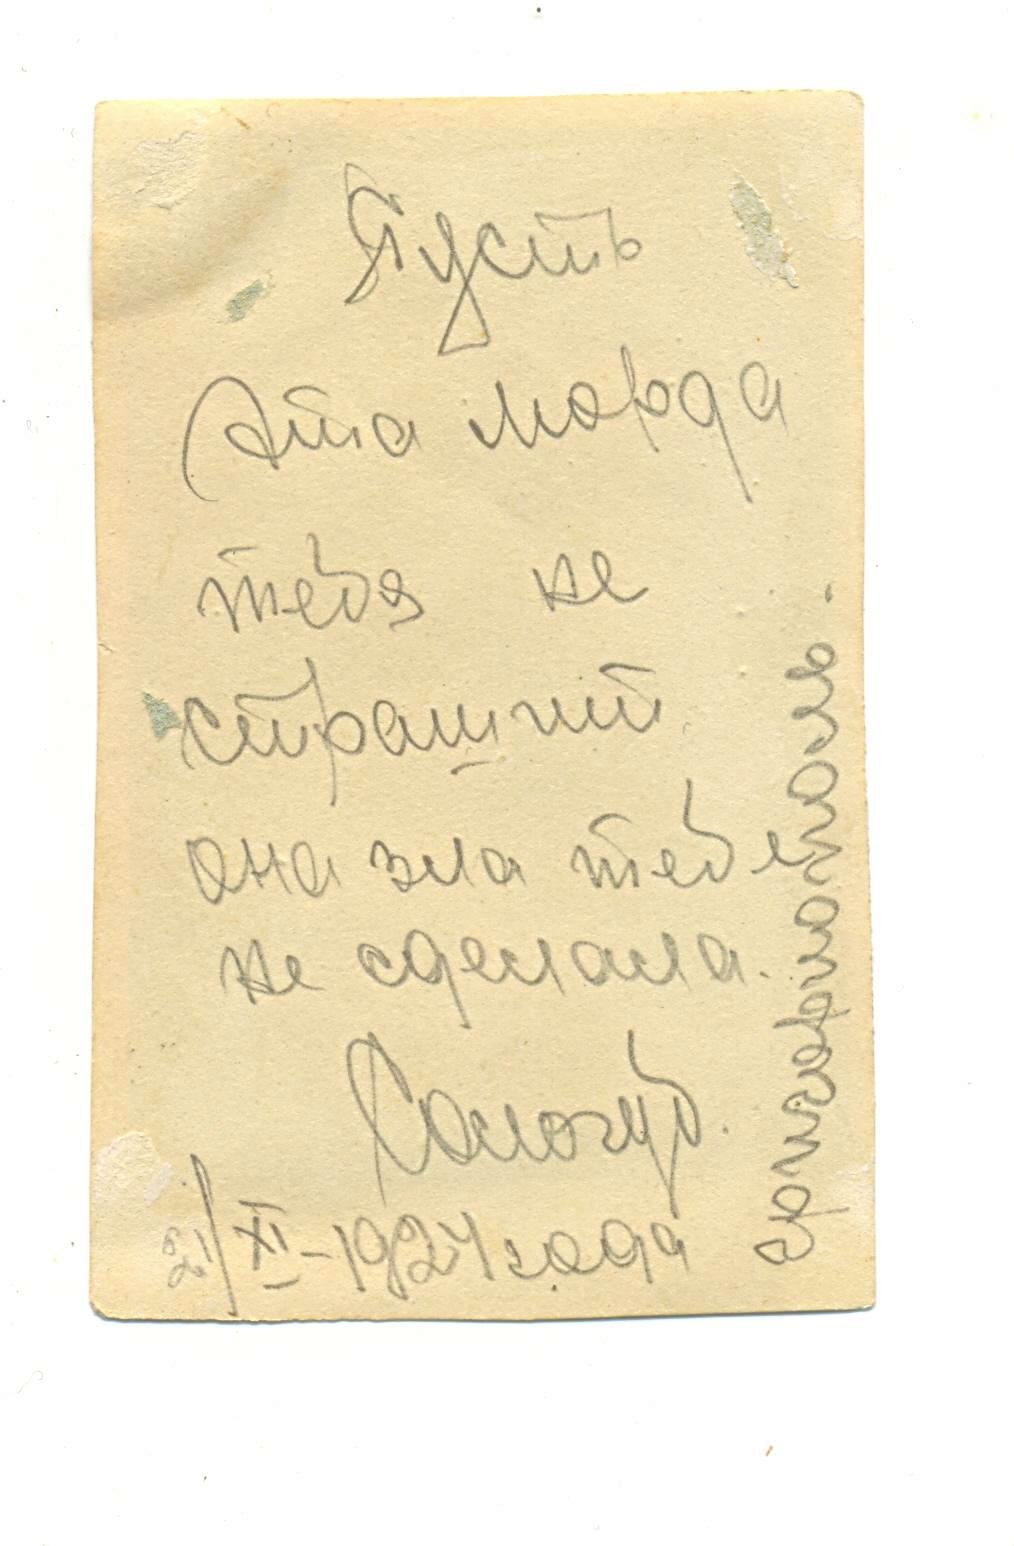 Пусть
Эта морда
тебя не
страшит
она зла тебе
не сделала.
Сологуб.
21/XI-1924 года